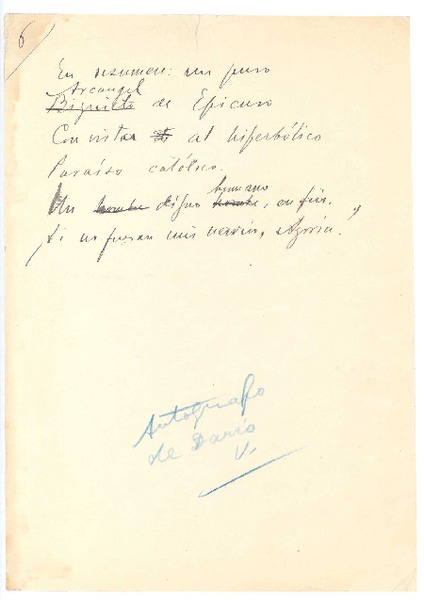 6
En resumen: un puro
Arcangel
de Epicuro
Con vistas al hiperbólico
Paraíso católico.
Un hombre digno humano hombre, en fin.
¡Si no fueran mis nervios, Azorín!
Autógrafo
de Darío
V.